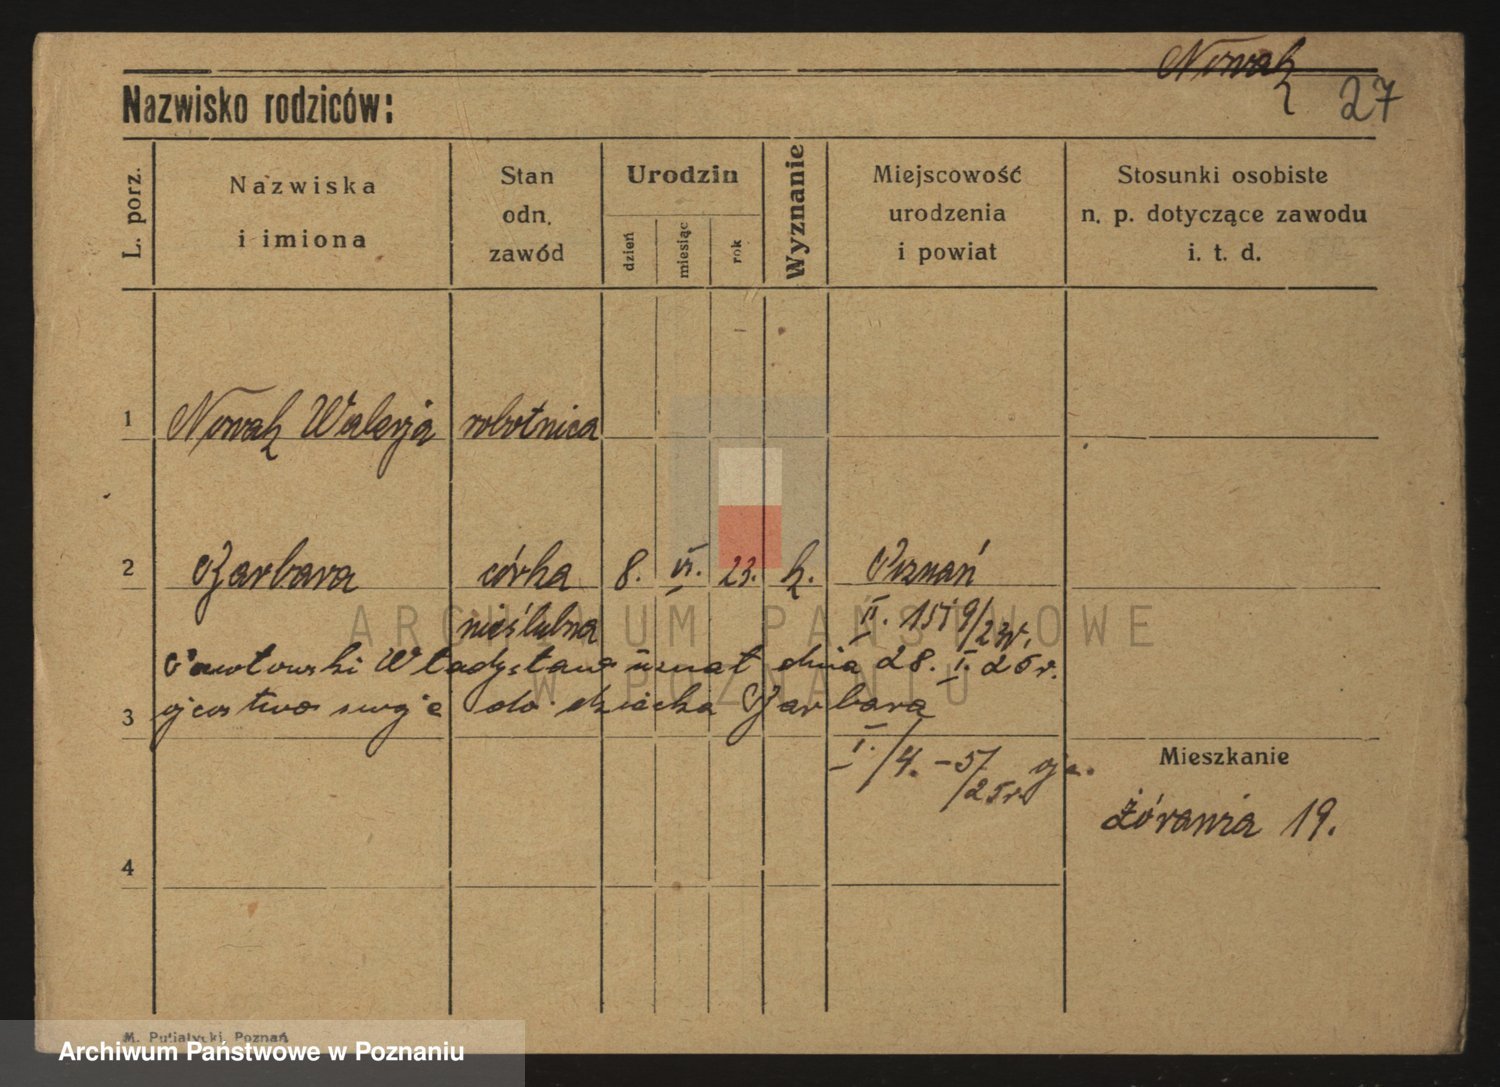 Nowak
27
Nazwisko rodziców:
L. porz.
Nazwiska
i imiona
Stan
odn.
zawód
Urodzin
dzień
miesiąc
rok
Wyznanie
Miejscowość
urodzenia
i powiat
Stosunki osobiste
n. p. dotyczące zawodu
i. t. d.
1 Nowak Walerja robotnica
2 Barbara córka 8. VI. 23. k. Poznań
nieślubna II. 1579/23r.
Pawłowski Władysław uznał dnia 28. I. 25r.
3 ojcostwo swoje do dziecka Barbara
I./4.-57/25r.
Mieszkanie
Żórawia 19.
4
M. Putiatycki, Poznań
ARCHIWUM PAŃSTWOWE
W POZNANIU
Archiwum Państwowe w Poznaniu